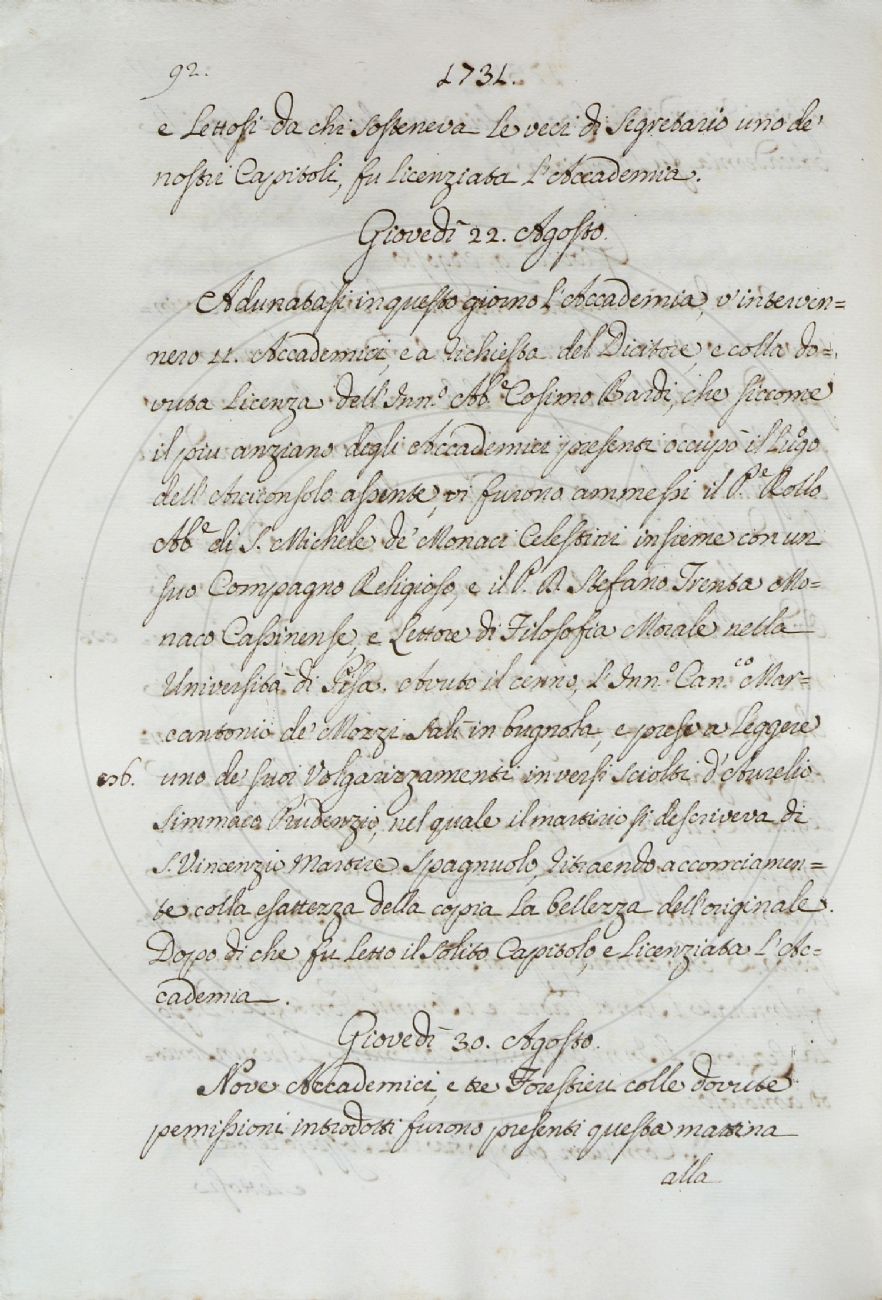 92.
1731.
e Lettosi da chi sosteneva le veci di Segretario uno de'
nostri Capitoli, fu licenziata l'Accademia.
Giovedì 22. Agosto.
Adunatasi in questo giorno l'Accademia, v'interven=
nero 11. Accademici, e a richiesta del Dicitore, e colla do=
vuta licenza dell'Inn.º Ab.e Cosimo Bardi, che siccome
il piu anziano degli Accademici presenti occupò il luogo
dell'Arciconsolo assente, vi furono ammessi il P.e Rollo
Ab.e di S. Michele de' Monaci Celestini insieme con un
suo Compagno Religioso, e il P. D. Stefano Trenta Mo=
naco Cassinense, e Lettore di Filosofia Morale nella
Università di Pisa. Avuto il cenno, l'Inn.º Can.co Mar=
cantonio de' Mozzi salì in bugnola, e prese a leggere
uno de' suoi Volgarizzamenti in versi sciolti d'Aurelio
Simmaco Prudenzio, nel quale il martirio si descriveva di
S. Vincenzio Martire Spagnuolo, ritraendo acconciamen=
te colla esattezza della copia la bellezza dell'originale.
Dopo di che fu letto il solito Capitolo, e licenziata l'Ac=
cademia.
Giovedì 30. Agosto.
Nove Accademici, e tre Forestieri colle dovute
pemissioni introdotti furono presenti questa mattina
alla